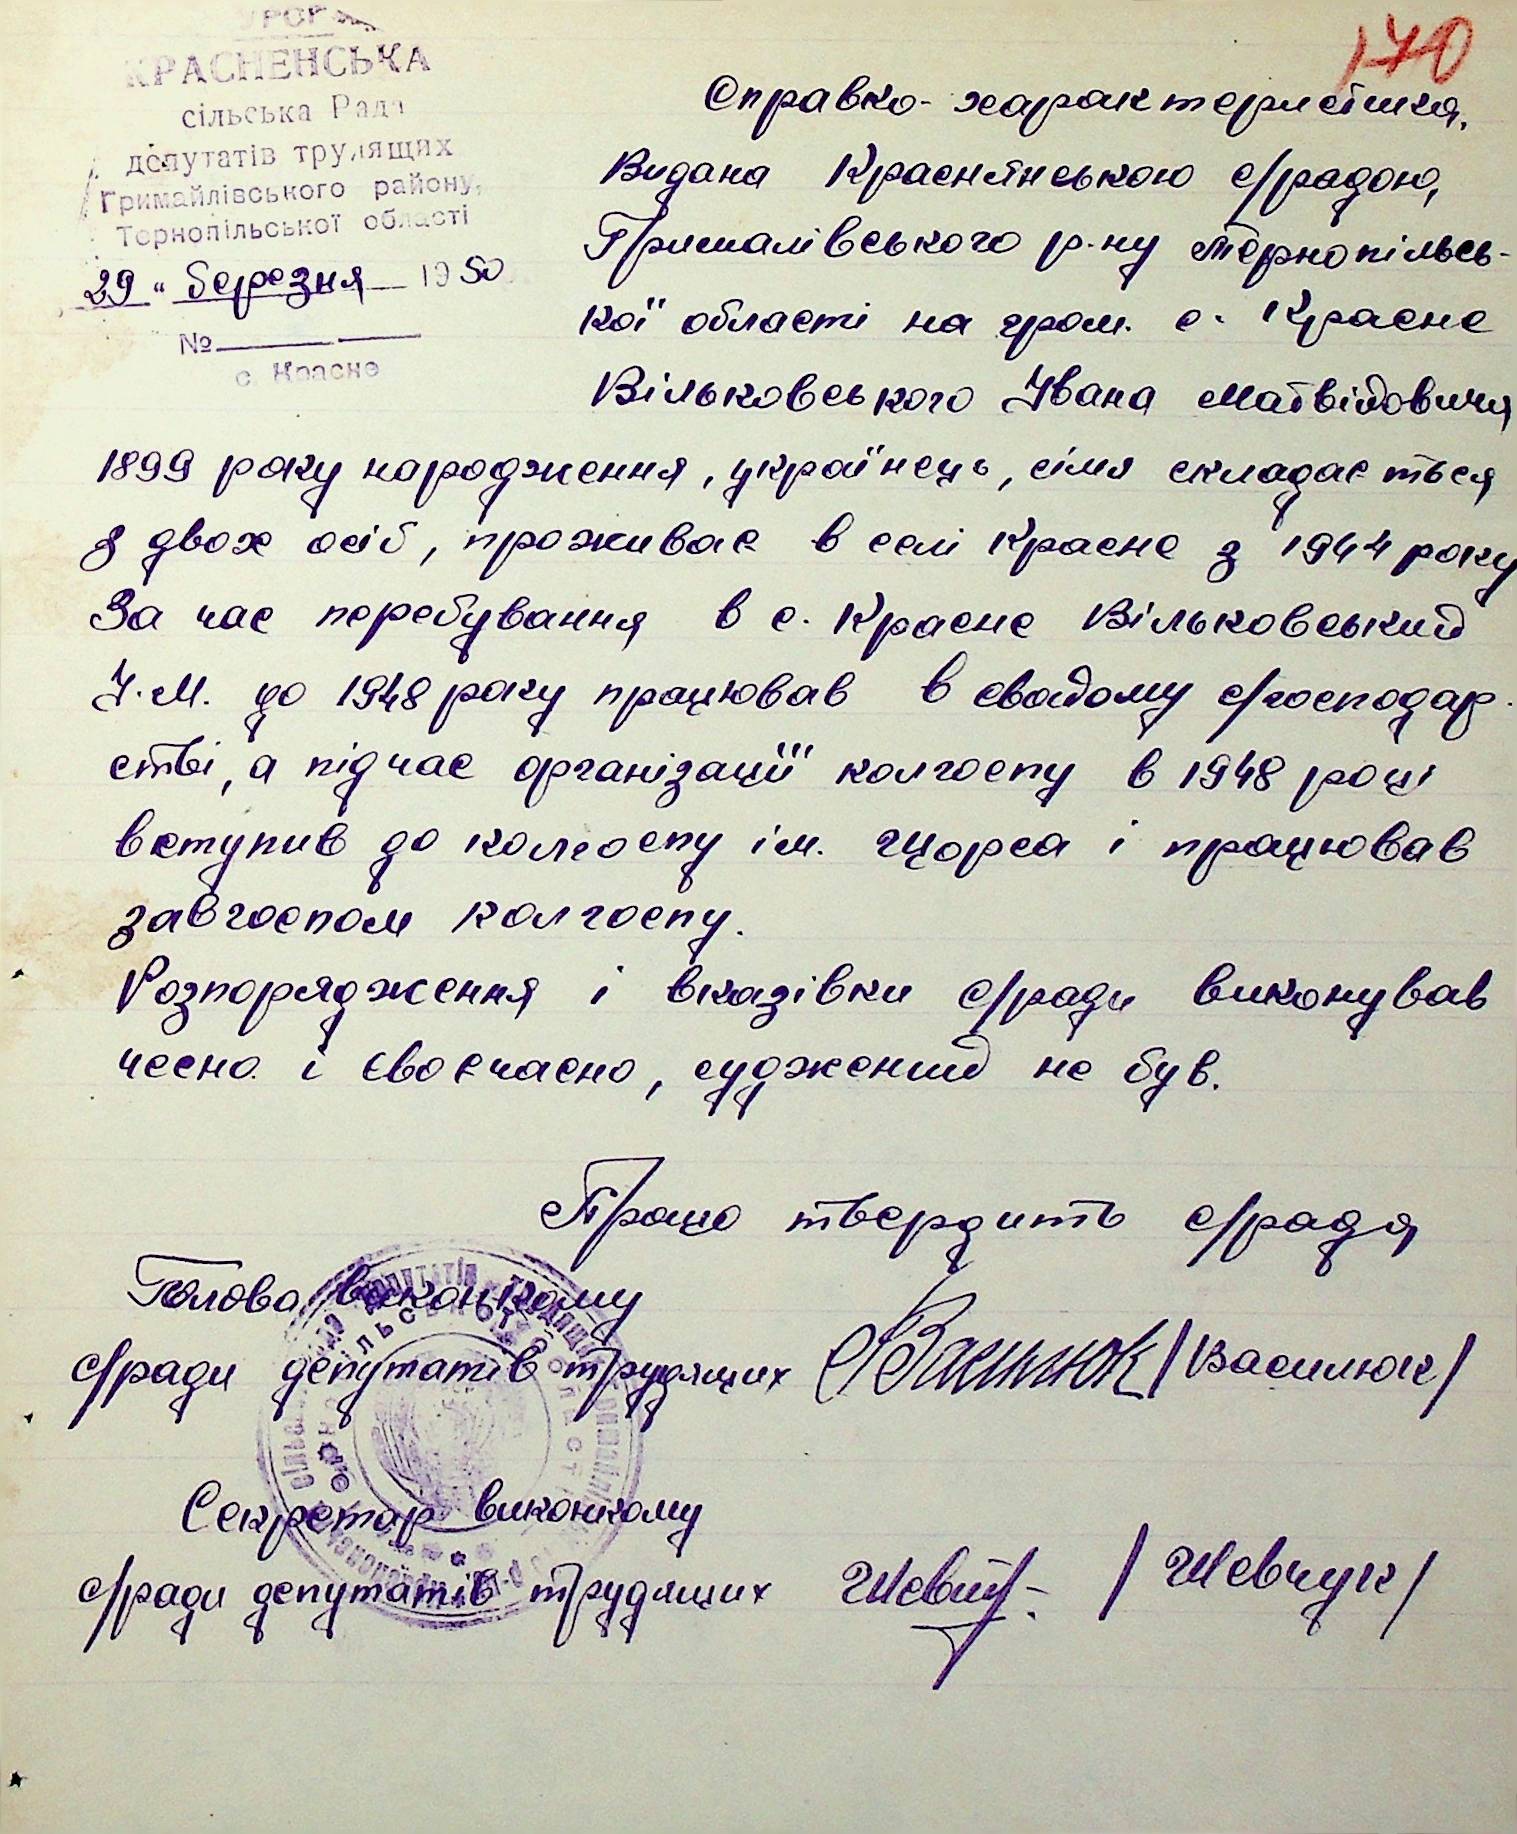 170
УРСР
КРАСНЕНСЬКА
сільська Рада
депутатів трудящих
Гримайлівського району,
Тернопільської області
29 " березня 1950
№
с. Красне
Справко-характеристика.
Видана Краснянською с/радою,
Грималівського р-ну Тернопільсь-
кої області на гром. с. Красне
Вільковського Івана Матвійовича
1899 року народження, українець, сімя складається
з двох осіб, проживає в селі Красне з 1944 року
За час перебування в с. Красне Вільковський
І.М. до 1948 року працював в свойому с/господар-
стві, а підчас організації колгоспу в 1948 році
вступив до колгоспу ім. Щорса і працював
завгоспом колгоспу.
Розпорядження і вказівки с/ради виконував
чесно і своєчасно, суджений не був.
Прощо твердить с/рада
Голова виконкому
с/ради депутатів трудящих Василюк /Василюк/
Секретар виконкому
с/ради депутатів трудящих /Шевчук/